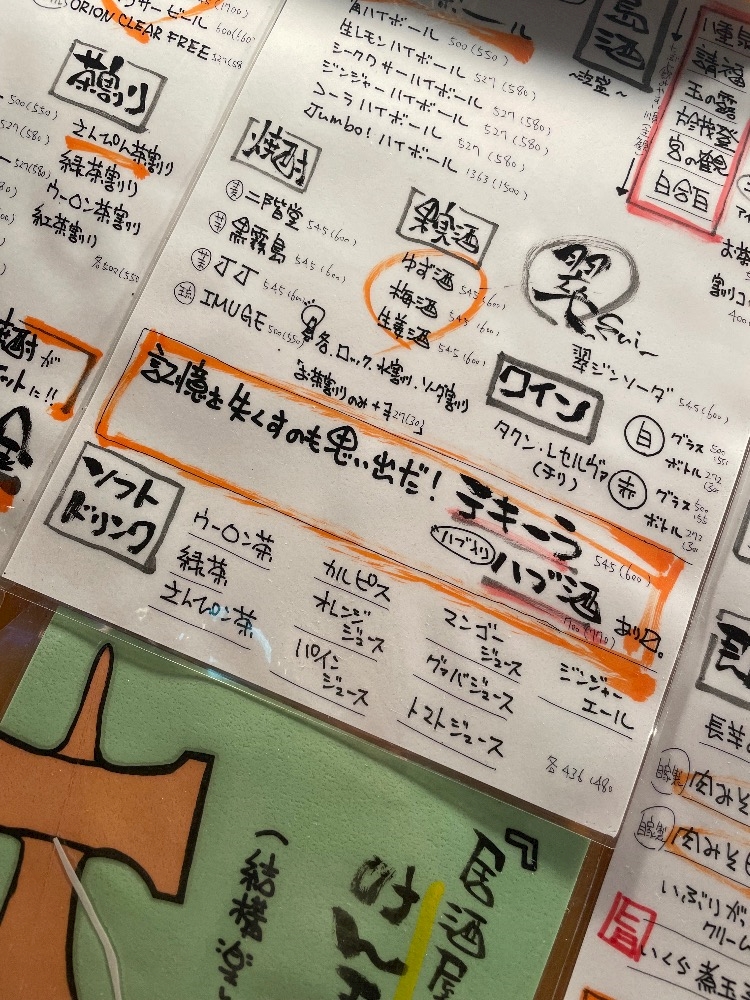 ORION CLEAR FREE
茶割り
さんぴん茶割り
緑茶割り
ウーロン茶割り
紅茶割り
角ハイボール 500(550)
生レモンハイボール 527(580)
シークワサーハイボール 527(580)
ジンジャーハイボール 527(580)
コーラハイボール 527(580)
Jumbo!ハイボール 1363(1500)
焼酎
麦 二階堂 545(600)
芋 黒霧島 545(600)
芋 JJ 545(600)
琉 IMUGE 500(550)
果実酒
ゆず酒 545(600)
梅酒 545(600)
生姜酒 545(600)
各.ロック.水割り.ソーダ割り
お茶割りのみ+¥27(30)
翠
Sui
翠ジンソーダ 545(600)
ワイン
タクン・レセルヴァ
(チリ)
白 グラス
ボトル
赤 グラス
ボトル
記憶を失くすのも思い出だ!
テキーラ 545(600)
ハブ入り ハブ酒 700(770) あり〼。
ソフト
ドリンク
ウーロン茶
緑茶
さんぴん茶
カルピス
オレンジ
ジュース
パイン
ジュース
マンゴー
ジュース
グァバジュース
トマトジュース
ジンジャー
エール
各436(480
島酒
玉の露
宮の鶴
白百合
自家製 肉みそ
自家製 肉みそ
いぶりがっ
クリーム
いくら煮玉
『居酒屋
けん
(結構楽